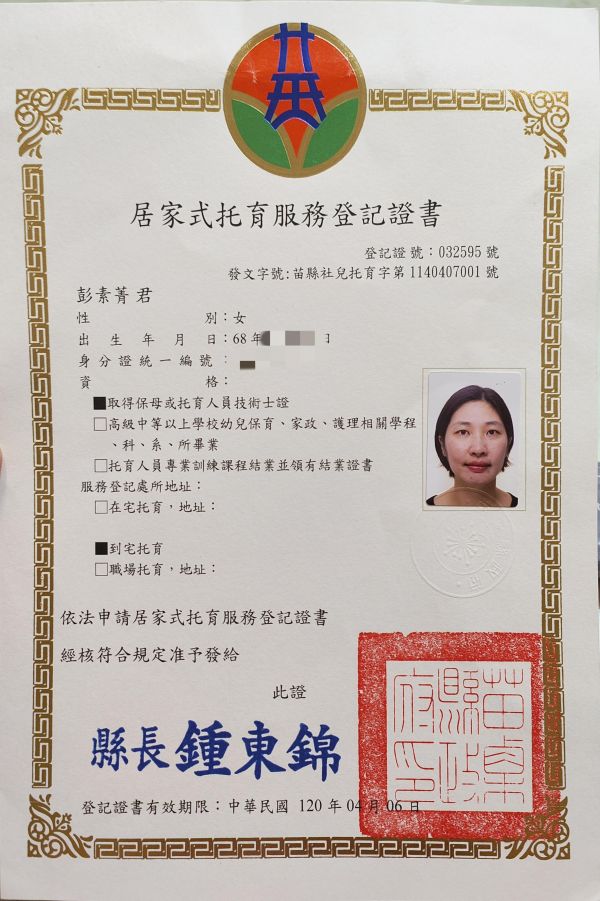 居家式托育服務登記證書
登記證號：032595號
發文字號:苗縣社兒托育字第1140407001號
彭素菁 君
性別：女
出生年月日：68年 日
身分證統一編號：
資格：
■取得保母或托育人員技術士證
□高級中等以上學校幼兒保育、家政、護理相關學程
、科、系、所畢業
□托育人員專業訓練課程結業並領有結業證書
服務登記處所地址：
□在宅托育，地址：
■到宅托育
□職場托育，地址：
依法申請居家式托育服務登記證書
經核符合規定准予發給
此證
縣長 鍾東錦
苗栗縣政府印
登記證書有效期限：中華民國 120 年 04 月 06 日